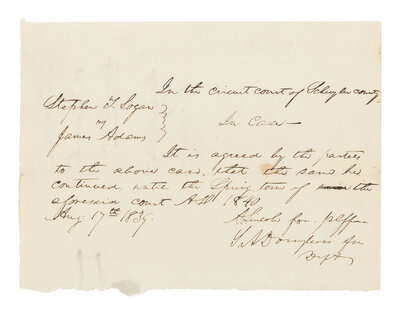 In the circuit court of Schuyler county
Stephen T. Logan
vs
James Adams
In Case —
It is agreed by the parties
to the above case, that the same be
continued, until the Spring term of the
aforesaid court A.D. 1840
Aug 17th 1839.
A Lincoln for plff
S A Douglass for
Deft